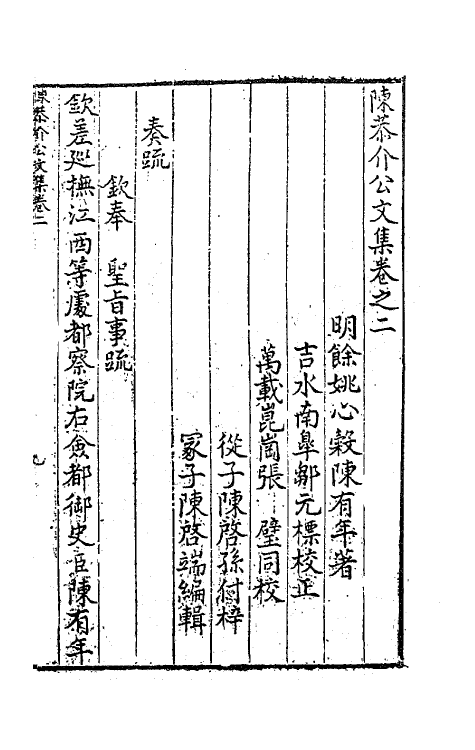 陳恭介公文集卷之二
明餘姚心穀陳有年著
吉水南臯鄒元標校正
萬載崑崗張 璧同校
從子陳啓孫付梓
冢子陳啓端編輯
奏疏
欽奉 聖旨事疏
欽差巡撫江西等處都察院右僉都御史臣陳有年
陳恭介公文集卷二